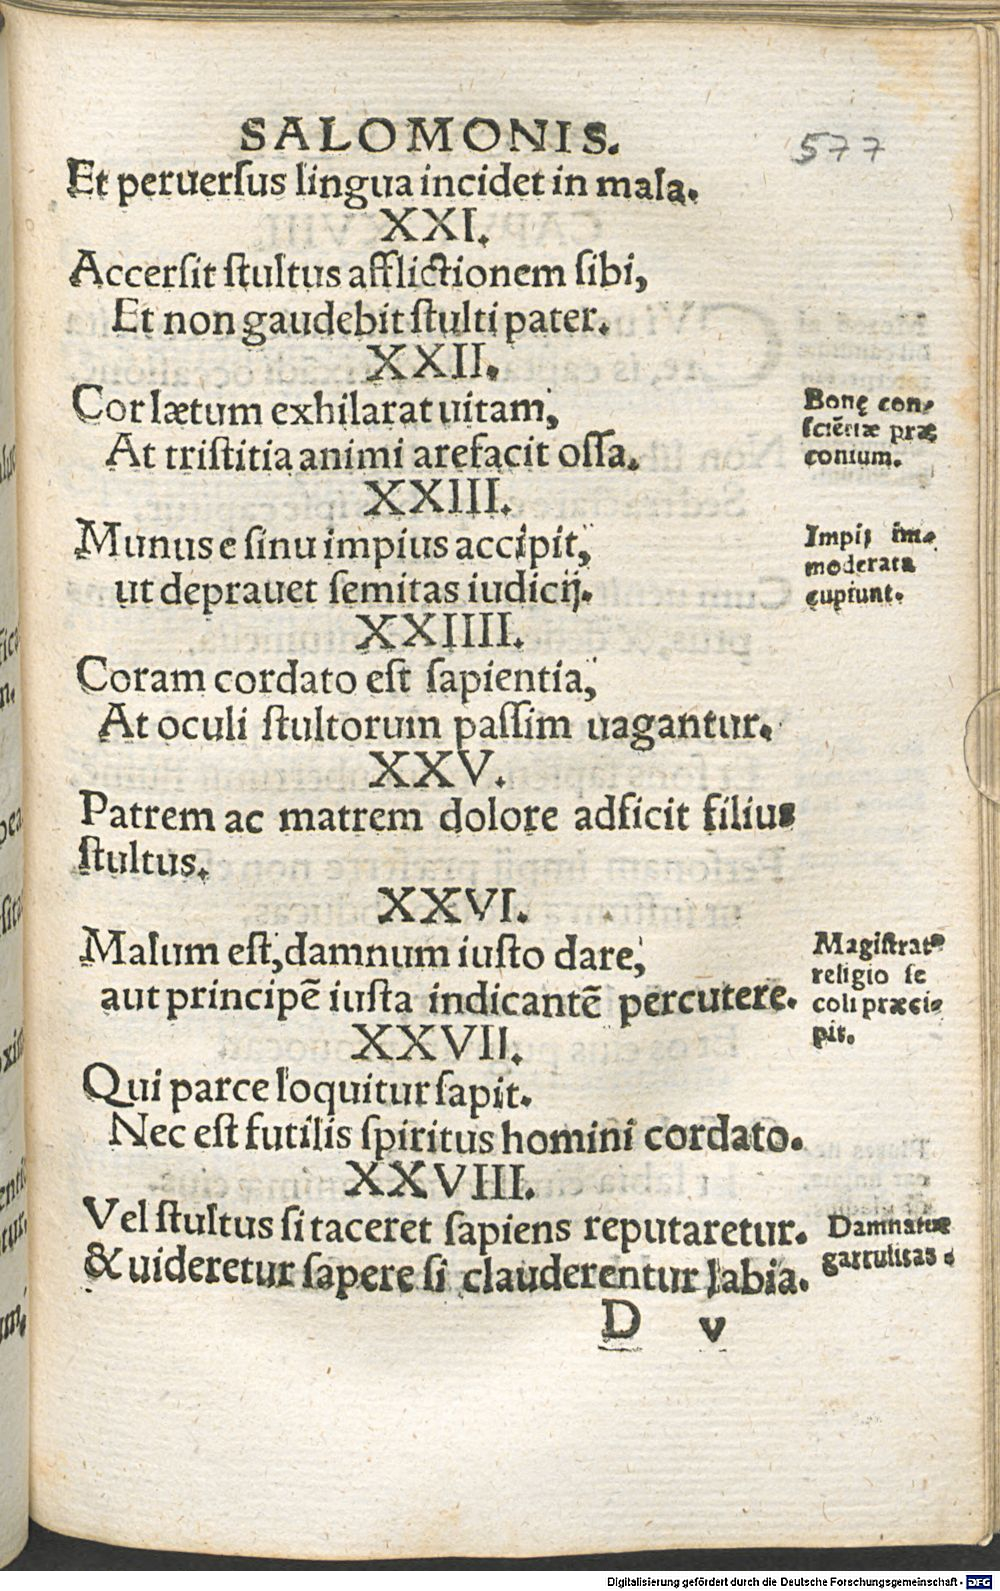 SALOMONIS.
577
Et peruersus lingua incidet in mala.
XXI.
Accersit stultus afflictionem sibi,
Et non gaudebit stulti pater.
XXII.
Cor lætum exhilarat uitam,
At tristitia animi arefacit ossa.
Bonę con-
sciẽtiæ præ
conium.
XXIII.
Munus e sinu impius accipit,
ut deprauet semitas iudicij.
Impij im-
moderata
cupiunt.
XXIIII.
Coram cordato est sapientia,
At oculi stultorum passim uagantur.
XXV.
Patrem ac matrem dolore adficit filius
stultus.
XXVI.
Malum est, damnum iusto dare,
aut principẽ iusta indicantẽ percutere.
Magistrat⁹
religio se
coli præci-
pit.
XXVII.
Qui parce loquitur sapit.
Nec est futilis spiritus homini cordato.
XXVIII.
Vel stultus si taceret sapiens reputaretur.
& uideretur sapere si clauderentur labia.
Damnatuæ
garrulitas.
D v
Digitalisierung gefördert durch die Deutsche Forschungsgemeinschaft - DFG